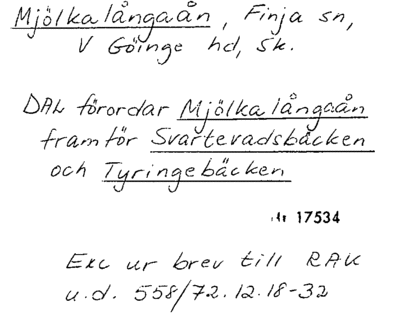 Mjölkalångaån, Finja sn,
V Göinge hd, Sk.
DAL förordar Mjölkalångaån
framför Svartevadsbäcken
och Tyringebäcken
17534
Exc ur brev till RAK
u.d. 558/72.12.18-32